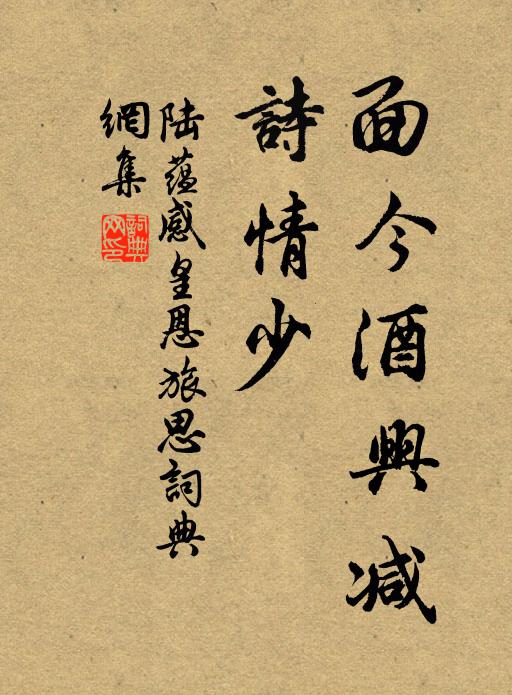 面今酒興减
詩情少
陆蕴感皇恩旅思詞典
網集
詞典网印